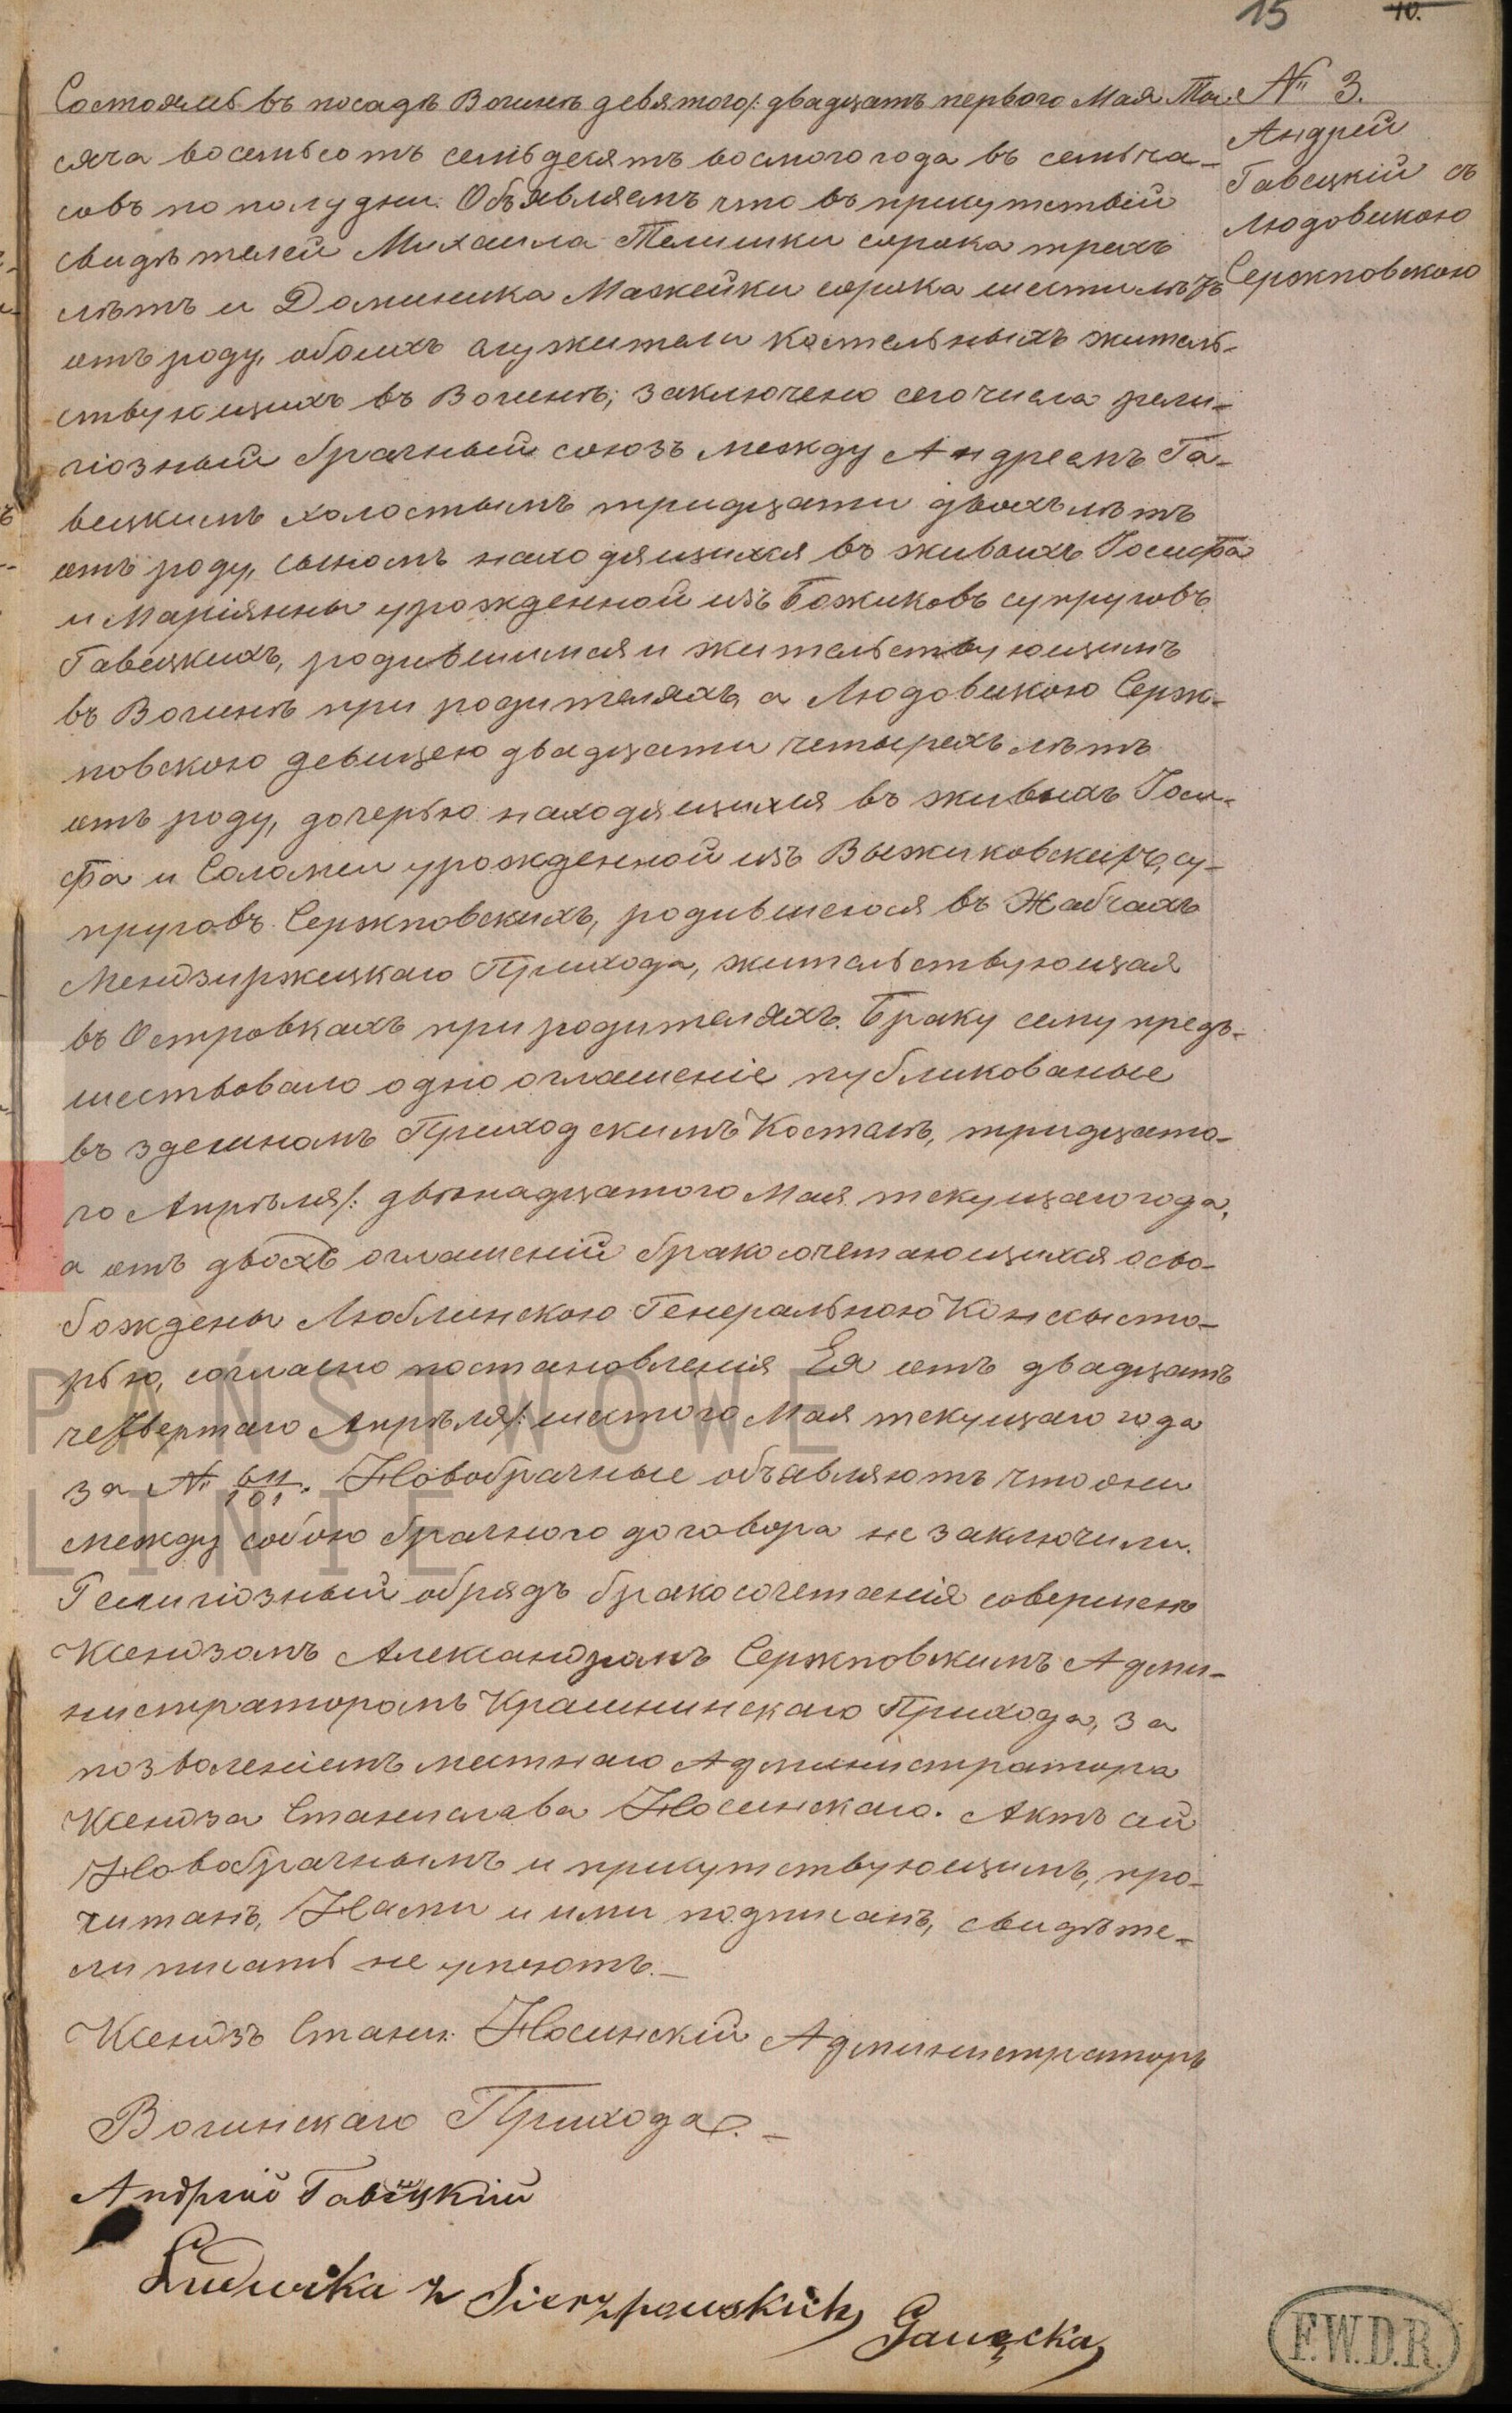 15 10.
Состоялсь въ посадѣ Вогинѣ девятого/: двадцать первого Мая Ты-
сяча восемьсотъ семьдесятъ восмого года въ семь ча-
совъ по полудни. Объявляемъ что въ присутствіи
свидѣтелей Михаила Телишки сорока трехъ
лѣтъ и Доминика Мажейки сорока шести лѣтъ
отъ роду, обоихъ служители костельныхъ житель-
ствующихъ въ Вогинѣ; заключено сего числа рели-
гіозный брачный союзъ между Андреемъ Га-
вецкимъ холостымъ тридцати двохъ лѣтъ
отъ роду, сыномъ находящихся въ живыхъ Іосифа
и Маріянны урожденной изъ Божиковъ супруговъ
Гавецкихъ, родившимся и жительствующимъ
въ Вогинѣ при родителяхъ, а Людовикою Серж-
повскою девицею двадцати четырехъ лѣтъ
отъ роду, дочерью находящихся въ живыхъ Іоси-
фа и Саломеи урожденной изъ Выжиковскихъ, су-
пруговъ Сержповскихъ, родившеюся въ Жабчахъ
Мендзиржецкаго Прихода, жительствующая
въ Островкахъ при родителяхъ. Браку сему пред-
шествовало одно оглашеніе публикованые
въ здешномъ Приходскимъ Костелѣ, тридцато-
го Апрѣля/: двѣнадцатого Мая текущаго года,
а отъ двохъ оглашеній бракосочетающихся осво-
бождены Люблинскою Генеральною Консысто-
рью, согласно постановленія Ея отъ двадцать
четвертаго Апрѣля/: шестого Мая текущаго года
за №. Новобрачные объявляютъ что они
между собою брачного договора не заключили.
Религіозный обрядъ бракосочетанія совершенъ
Ксендзомъ Александромъ Сержповскимъ Адми-
нистраторомъ Крашнинскаго Прихода, за
позволеніемъ местнаго Администратора
Ксендза Станислава Носинскаго. Актъ сей
Новобрачнымъ и присутствующимъ, про-
читанъ, Нами и ими подписанъ, свидѣте-
ли писать не умеютъ.
Ксендзъ Стани: Носинскій Администраторъ
Вогинскаго Прихода.
Андрей Гавецкій
Ludwika z Sierzpowskich Gawecka
№ 3.
Андрей
Гавецкій съ
Людовикою
Сержповскою
PAŃSTWOWE
LINIE
F.W.D.R.